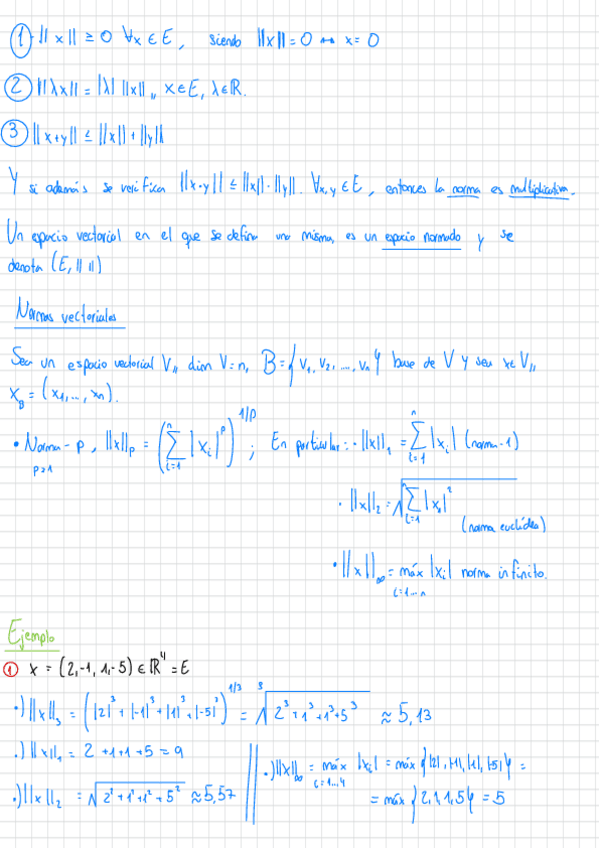 ① ||x|| ≥ 0 ∀x ∈ E, siendo ||x|| = 0 ↔ x = 0
② ||λx|| = |λ| ||x||,, x ∈ E, λ ∈ ℝ.
③ ||x+y|| ≤ ||x|| + ||y||
Y si además se verifica ||x·y|| ≤ ||x||·||y||. ∀x,y ∈ E, entonces la norma es multiplicativa.
Un espacio vectorial en el que se defina una misma, es un espacio normado y se
denota (E, || ||)
Normas vectoriales
Sea un espacio vectorial V,, dim V=n, B={v₁, v₂, ..., vₙ} base de V y sea x∈V,,
x_B = (x₁, ..., xₙ).
• Norma-p, ||x||_p = (∑_{i=1}^{n} |xᵢ|^p)^{1/p}; En particular: · ||x||₁ = ∑_{i=1}^{n} |xᵢ| (norma-1)
p≥1
· ||x||₂ = √(∑_{i=1}^{n} |xᵢ|²)
(norma euclídea)
· ||x||_∞ = máx |xᵢ| norma infinito.
i=1...n
Ejemplo
① x = (2,-1,1,-5) ∈ ℝ⁴ = E
·) ||x||₃ = (|2|³ + |-1|³ + |1|³ + |-5|³)^{1/3} = ∛(2³+1³+1³+5³) ≈ 5,13
·) ||x||₁ = 2+1+1+5 = 9
·) ||x||₂ = √(2²+1²+1²+5²) ≈ 5,57
·) ||x||_∞ = máx |xᵢ| = máx {|2|, |-1|, |1|, |-5|} =
i=1...4
= máx {2,1,1,5} = 5